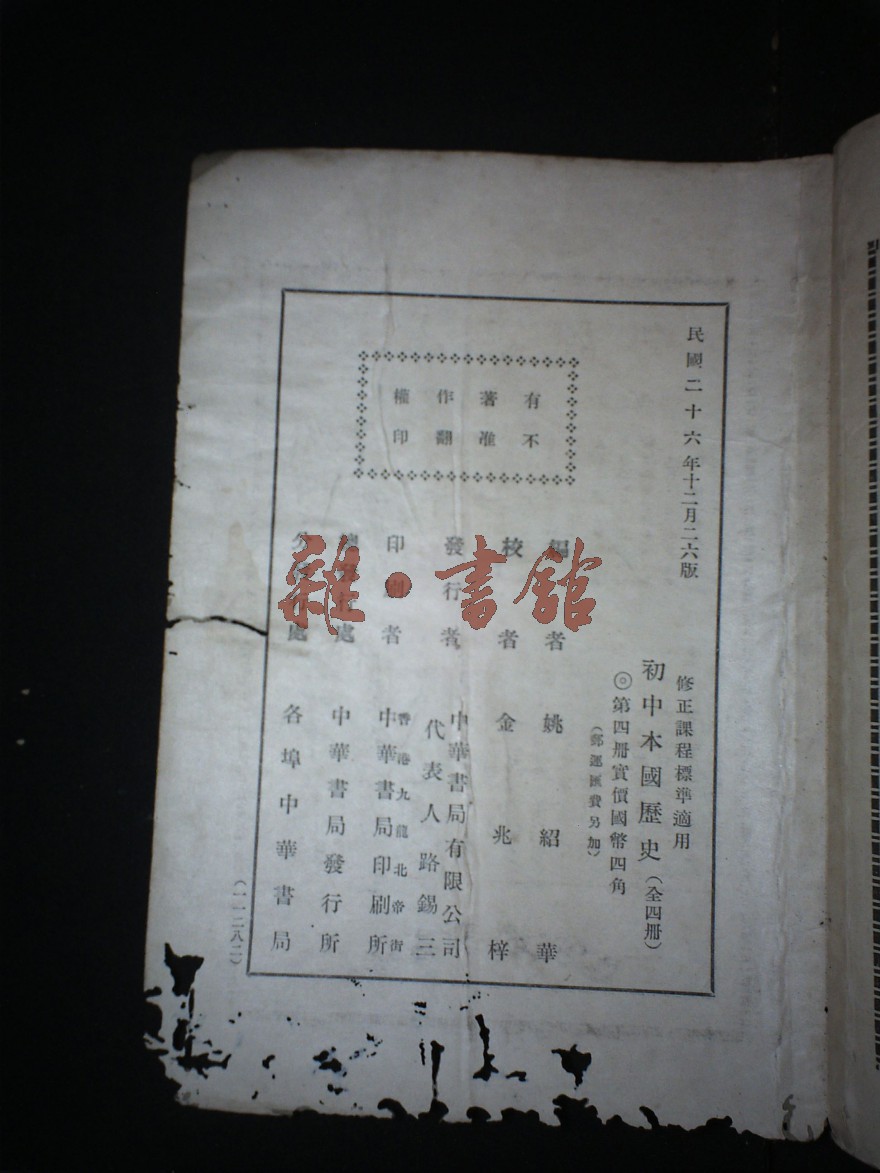 民國二十六年十二月二六版
修正課程標準適用
初中本國歷史（全四冊）
◎第四册實價國幣四角
（郵運匯費另加）
有著作權
不准翻印
編者 姚紹華
校者 金兆梓
發行者 中華書局有限公司
代表人路錫三
印刷者 香港九龍北帝街
中華書局印刷所
發行處 中華書局發行所
處 各埠中華書局
（一一二八二）
雜·書館